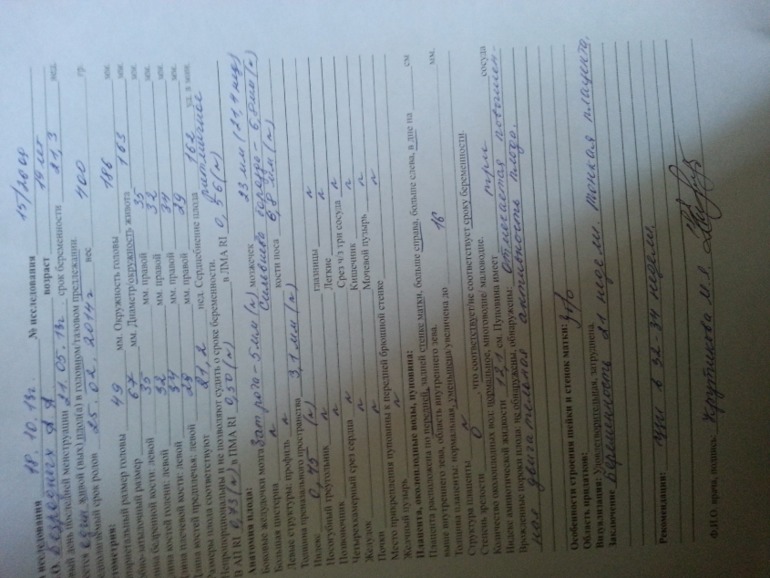 исследования 18.10.13г. № исследования 15/2008
О. Безродных А Я возраст 19 лет
первый день последней менструации 21.05.13г. , срок беременности 21,3 нед.
один живой (вых) плод(а) в головном/тазовом предлежании.
срок родов 25.02.2014г вес 400 гр.
размер головы 49 мм. Окружность головы 186 мм.
размер 67 мм. Диаметр/окружность живота 163 мм.
бедренной кости левой 35 мм. правой 35 мм.
костей голени: левой 32 мм. правой 32 мм.
плечевой кости: левой 34 мм. правой 34 мм.
костей предплечья: левой 29 мм. правой 29 мм.
Размеры плода соответствуют 21,2 нед. Сердцебиение плода 162 ритмичное уд. в мин.
и не позволяют судить о сроке беременности.
В АП RI 0,73(N) в ПМА RI 0,50(N) в ЛМА RI 0,56(N)
Анатомия плода:
Боковые желудочки мозга 5 мм (N) мозжечок 23 мм (21,4 нед)
Большая цистерна N
структуры: профиль N кости носа 6,8 мм (N)
Толщина пространства 3,1 мм (N)
Индекс 0,45 (N) глазницы N
Носогубный треугольник N Легкие N
Позвоночник N Срез ч/з три сосуда N
Четырехкамерный срез сердца N Кишечник N
Желудок N Мочевой пузырь N
Почки N
Место прикрепления пуповины к передней брюшной стенке N
Желчный пузырь
Плацента, околоплодные воды, пуповина:
Плацента расположена по передней, задней стенке матки, больше справа, больше слева, в дне на см
выше внутреннего зева, область внутреннего зева.
Толщина плаценты: нормальная, уменьшена увеличена до 16 мм.
Структура плаценты N
Степень зрелости 0 , что соответствует/не соответствует сроку беременности.
Количество околоплодных вод: нормальное, многоводие, маловодие.
Индекс амниотической жидкости 13,1 см. Пуповина имеет три сосуда
Врожденные пороки плода: не обнаружены, обнаружены: Отмечается повышен-
ная двигательная активность плода.
Особенности строения шейки и стенок матки: з/р/о
Область придатков:
Визуализация: Удовлетворительная, затруднена.
Заключение Беременность 21 недели. Тонкая плацента.
Рекомендации: УЗИ в 32-34 недели
Ф.И.О. врача, подпись: Крутикова М.Я.